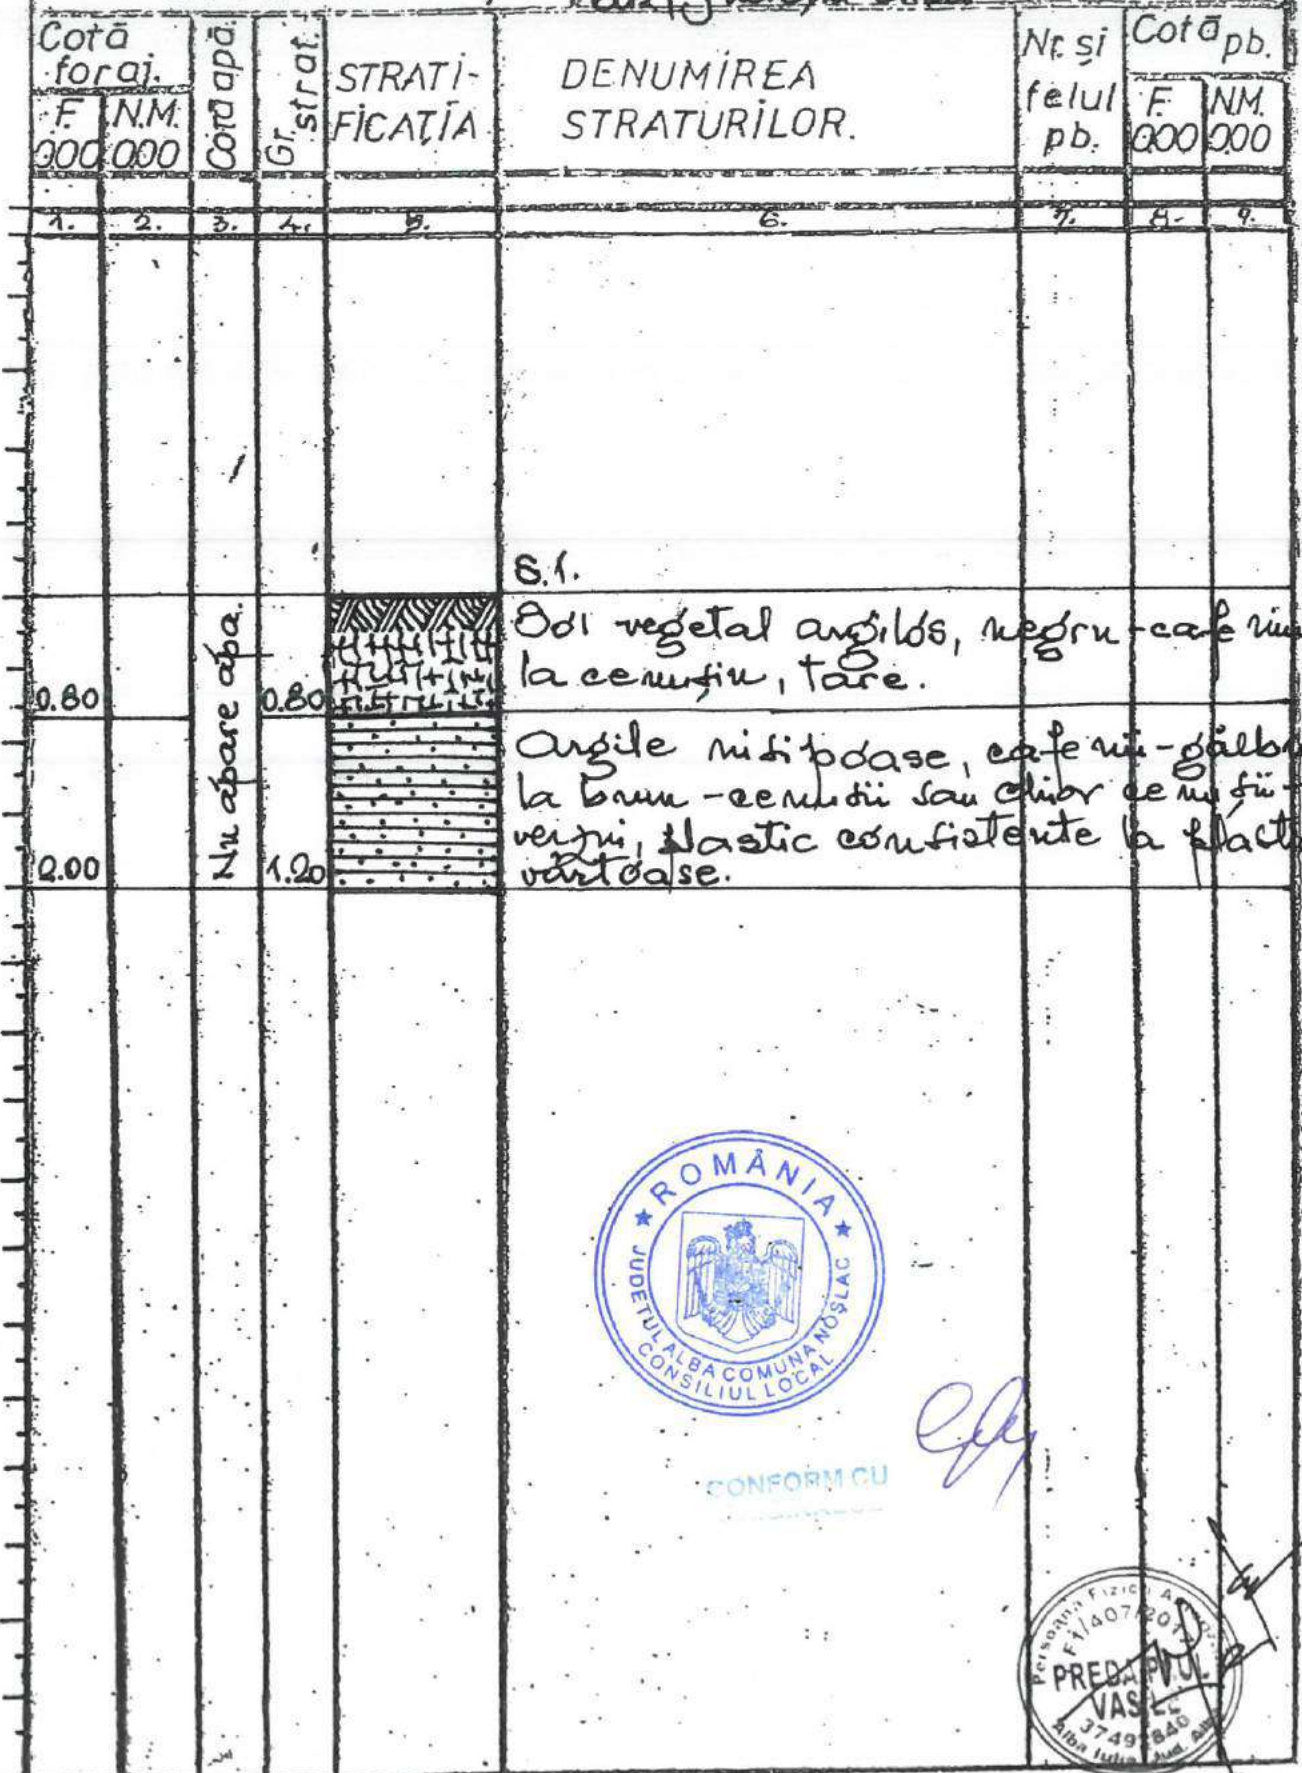 Cotă foraj.
F. 0.00
N.M. 0.00
Cotă apă.
Gr. strat.
STRATI-
FICAŢIA
DENUMIREA
STRATURILOR.
Nr. și
felul
pb.
Cotă pb.
F. 0.00
N.M. 0.00
1. 2. 3. 4. 5. 6. 7. 8. 9.
S.1.
Sol vegetal argilos, negru-cafeniu
la cenușiu, tare.
0.80
0.80
Nu apare apa.
Argile nisipoase, cafenii-gălbui
la brun-cenușii sau chiar cenușii-
verzui, plastic consistente la plastic
vârtoase.
2.00
1.20
ROMÂNIA
JUDEȚUL ALBA COMUNA NOȘLAC
CONSILIUL LOCAL
CONFORM CU
Persoană Fizică
PREDA
VASILE
Alba Iulia Jud. Alba